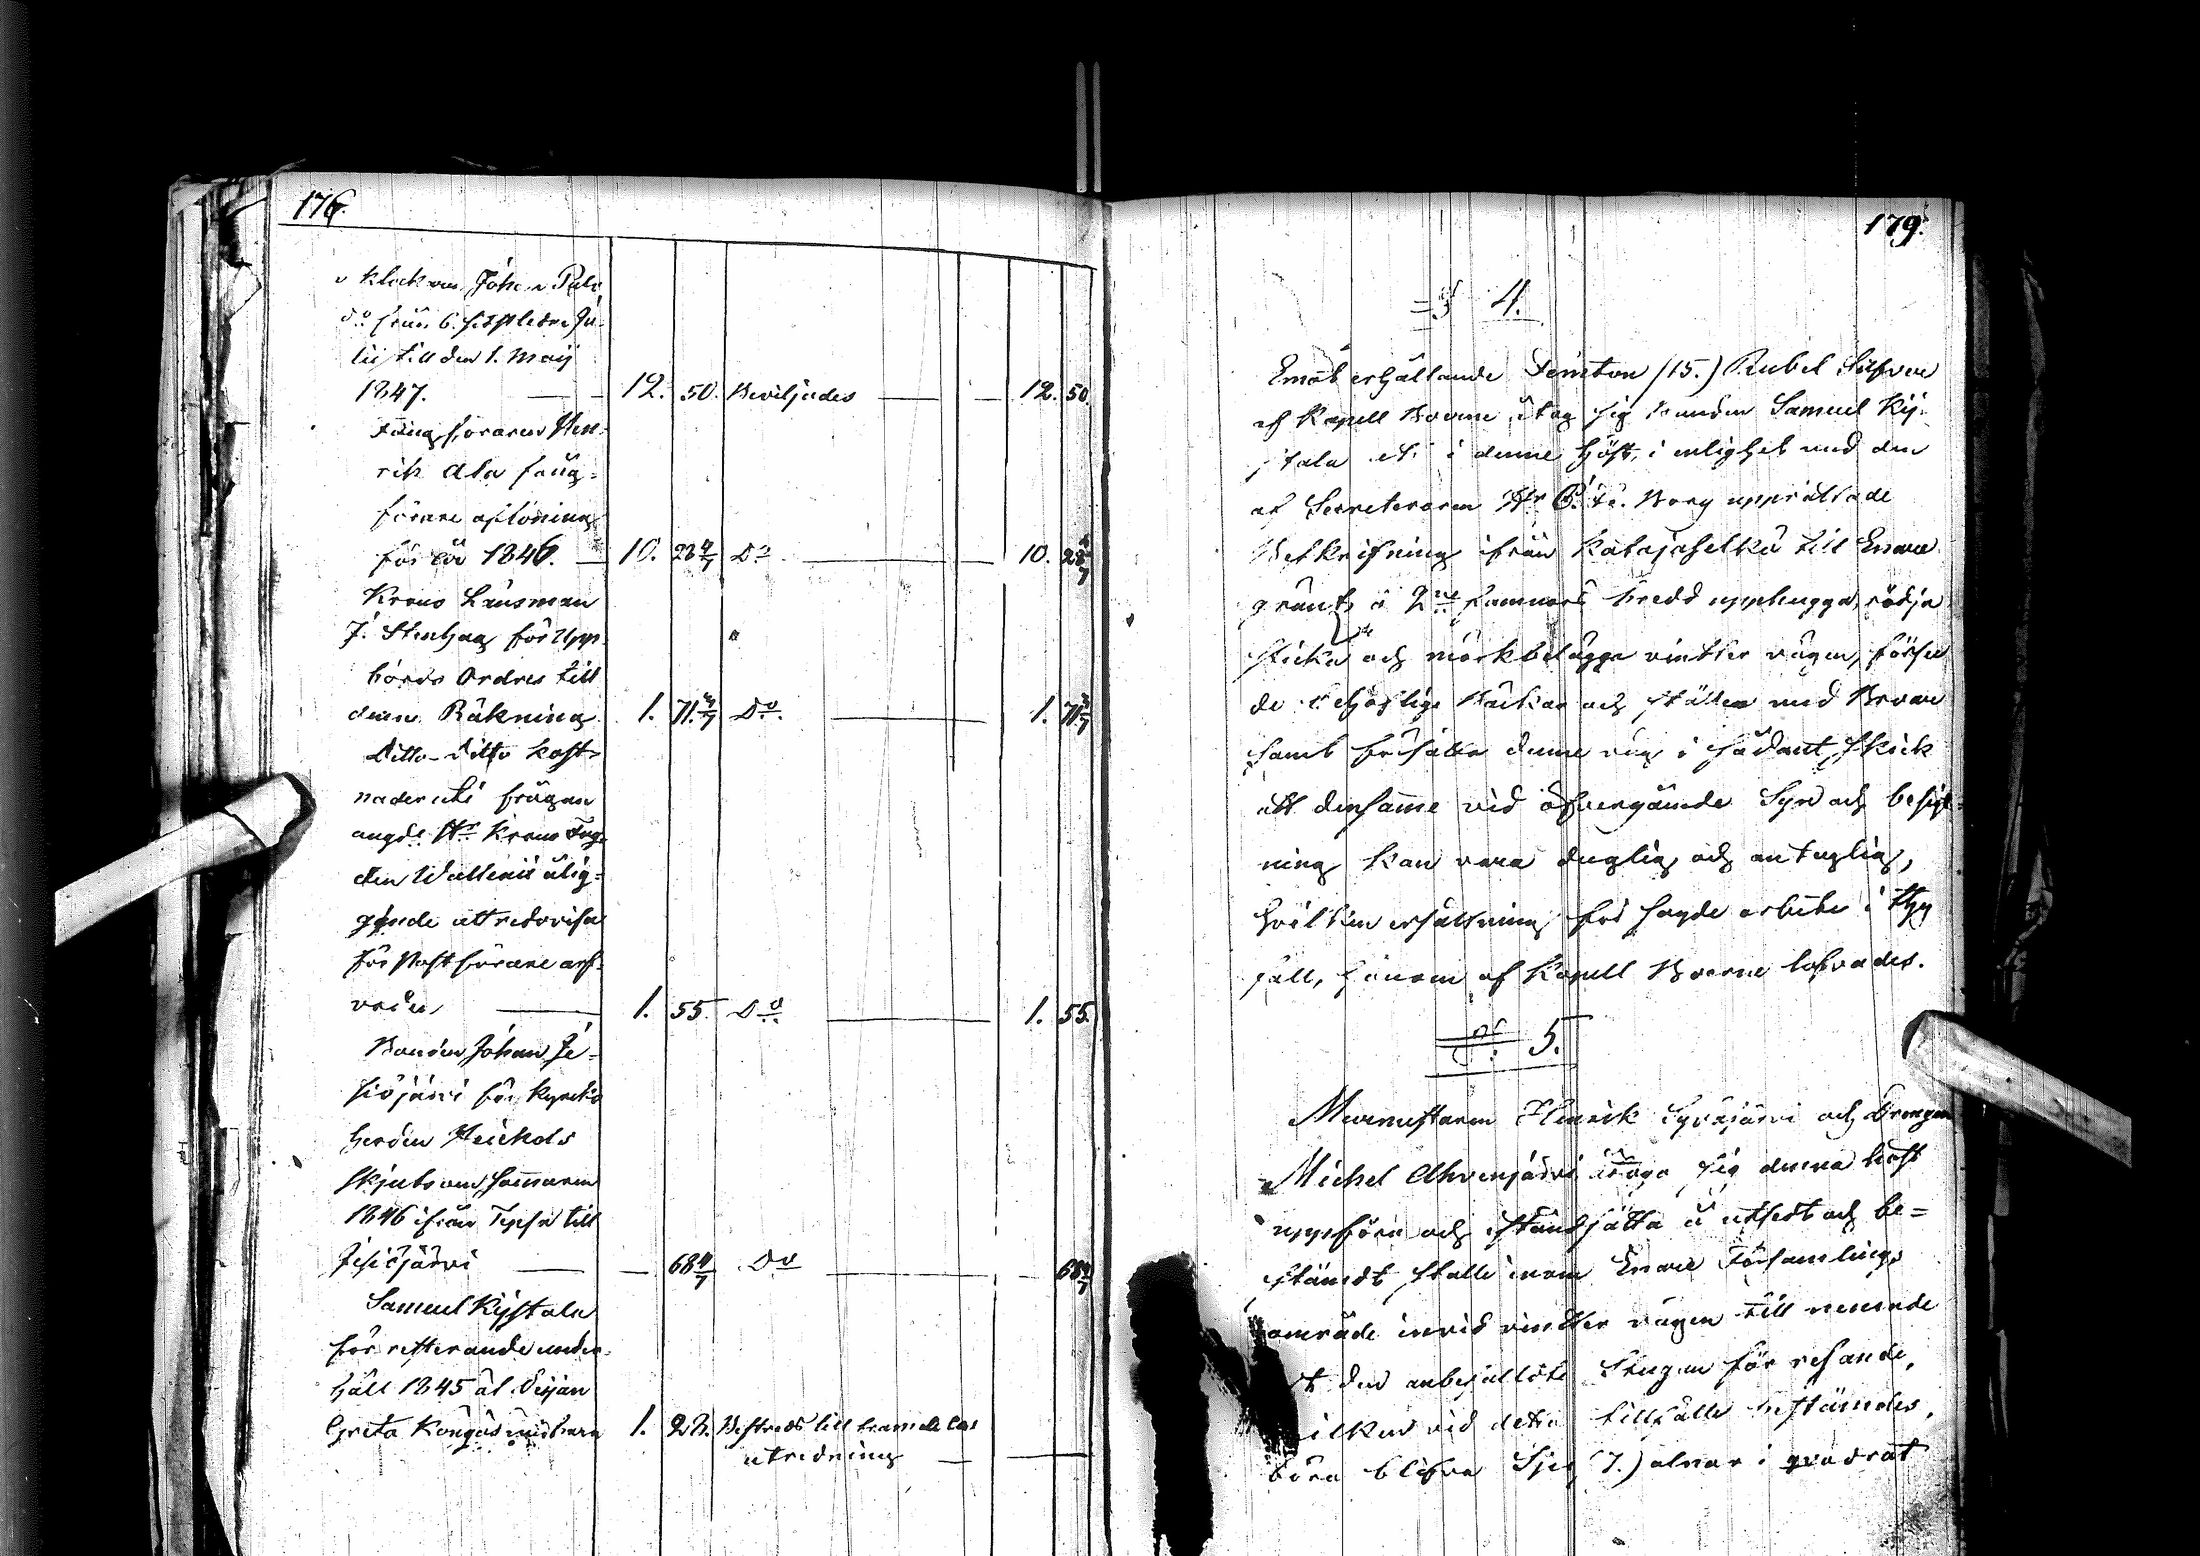 176.
Klockaren Johan Pulu
do från
lii till den 1. Maij
1847. 12. 50. Beviljades 12. 50.
Fångföraren Hen-
rik Ala fång-
förare aflöning
för år 1846. 10. 28 4/7 Do 10. 28 4/7
Krono Länsman
J. Stenhag för Upp-
börds Ordres till
denna Räkning 1. 71 3/7 Do. 1. 71 3/7
Ditto Ditto kost-
nader uti frågan
angde Hr Krono Fog-
den Wallenii ålig-
gande att redovisa
för Postförare arf-
voden 1. 55. Do 1. 55.
Bonden Johan Je-
siöjärvi för kyrko
herden Heickels
skjuts om sommaren
1846 ifrån Tepsa till
Jesiöjärvi 68 4/7 Do 68 4/7
Samuel Kijstala
för resterande under-
håll 1845 åt Pigan
Greta Kongäs 1. 22. till
utredning
179.
§ 4.
Emot erhållande Femton (15.) Rubel Silfver
af Kapell Boerne åtog sig bonden Samuel Kij-
stala att i denne höst, i enlighet med den
af Secreteraren Hr Borg upprättade
Beskrifning ifrån Katajaselkä till Enare
gränts å 2ne famnars bredd upphugga, rödja
sticka och märkbelägga vintter vägen, förse
de behöflige Bäckar och ställen med Broar
samt försätta denne väg i sådant skick
att densamme vid öfvergående Syn och besigt-
ning kan vara duglig och antaglig,
hvilken ersättning för sagde arbete i thy
fall, honom af Kapell Boerne lofvades.
§ 5.
Muremestaren Henrik Syväjärvi och Drengen
Michel Ahvenjärvi åtaga sig denna höst
uppföra och iståndsätta å utsedt och be-
stämdt ställe inom Enare Församlings
område invid vintter vägen till nemnde
ort den anbefallte Stugan för resande,
hvilken vid detta tillfälle bestämdes,
böra blifva Sju (7.) alnar i qvadrat